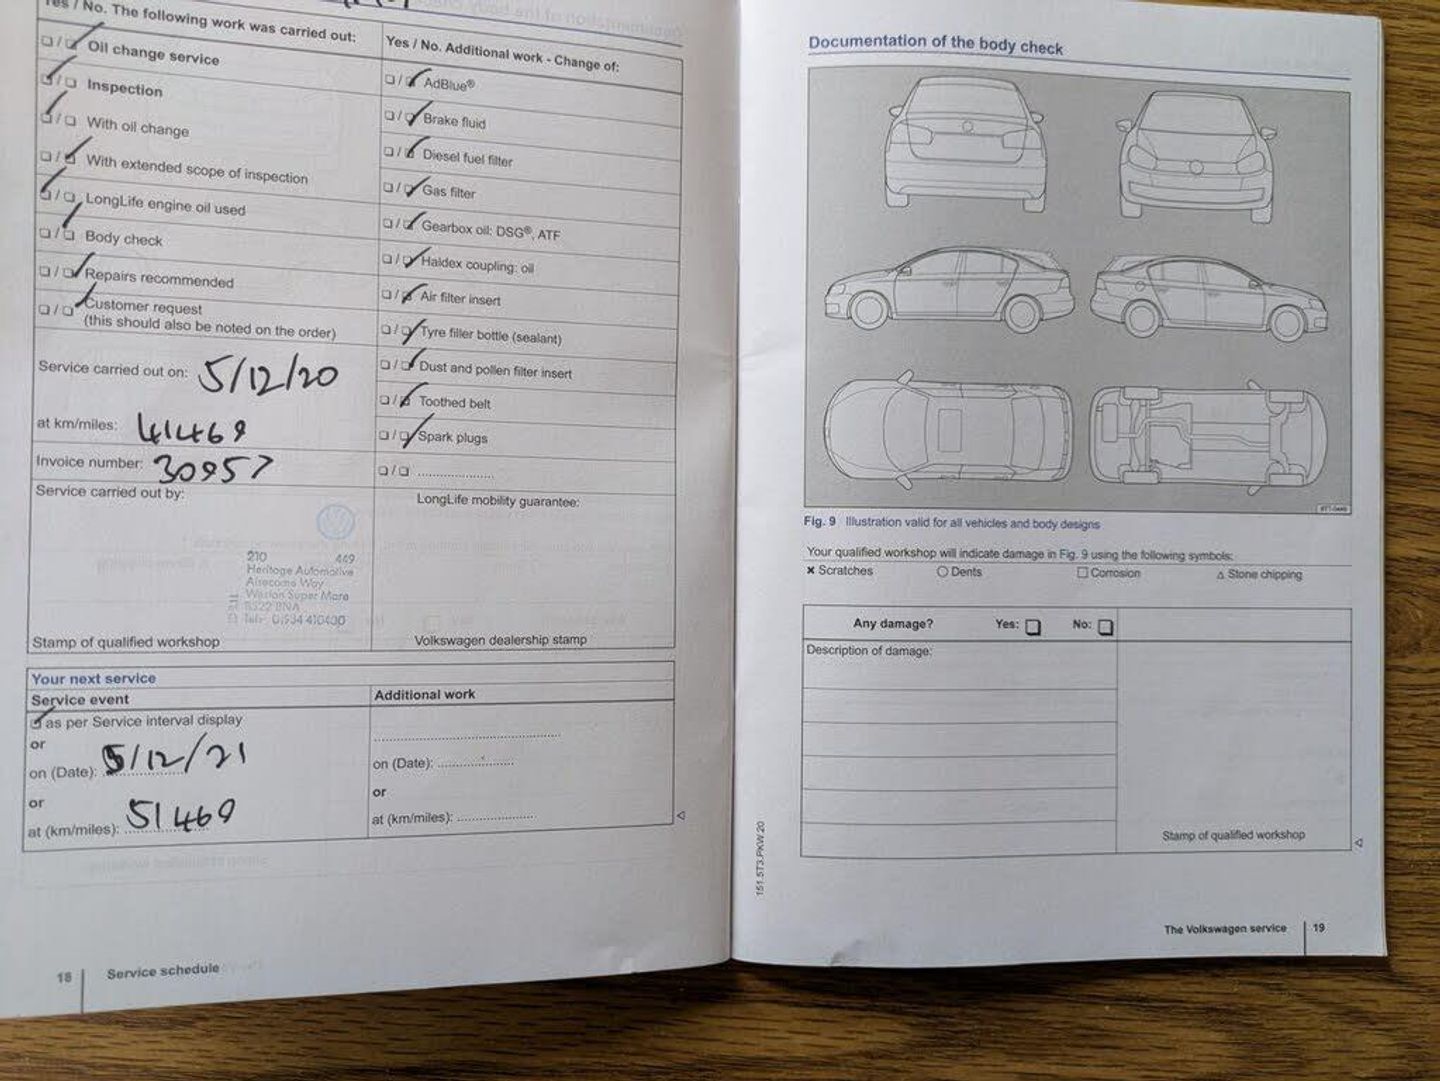 Yes / No. The following work was carried out:
Oil change service
Inspection
With oil change
With extended scope of inspection
LongLife engine oil used
Body check
Repairs recommended
Customer request
(this should also be noted on the order)
Service carried out on: 5/12/20
at km/miles: 41469
Invoice number: 30957
Service carried out by:
210 449
Heritage Automotive
Airecome Way
Weston Super Mare
BS22 8NA
Tel:- 01934 410400
Stamp of qualified workshop
Yes / No. Additional work - Change of:
AdBlue®
Brake fluid
Diesel fuel filter
Gas filter
Gearbox oil: DSG®, ATF
Haldex coupling: oil
Air filter insert
Tyre filler bottle (sealant)
Dust and pollen filter insert
Toothed belt
Spark plugs
LongLife mobility guarantee:
Volkswagen dealership stamp
Your next service
Service event
as per Service interval display
or
on (Date): 5/12/21
or
at (km/miles): 51469
Additional work
on (Date):
or
at (km/miles):
18 Service schedule
Documentation of the body check
Fig. 9 Illustration valid for all vehicles and body designs
Your qualified workshop will indicate damage in Fig. 9 using the following symbols:
Scratches Dents Corrosion Stone chipping
Any damage? Yes: No:
Description of damage:
Stamp of qualified workshop
151.5T3.PKW.20
The Volkswagen service 19